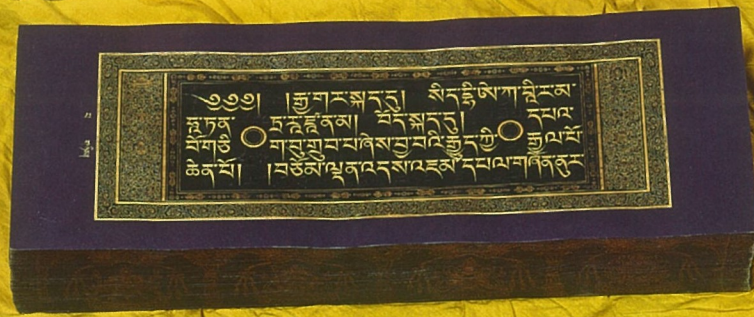 ༄༅༅། །རྒྱ་གར་སྐད་དུ། སིདྡྷི་ཨེ་ཀ་བཱི་ར་མ་
ཧཱ་ཏན་ ཏྲ་རཱ་ཛཱ་ནཱ་མ། བོད་སྐད་དུ། དཔའ་
བོ་གཅི ག་བུ་གྲུབ་པ་ཞེས་བྱ་བའི་རྒྱུད་ཀྱི་ རྒྱལ་པོ་
ཆེན་པོ། །བཅོམ་ལྡན་འདས་འཇམ་དཔལ་གཞོན་ནུར་